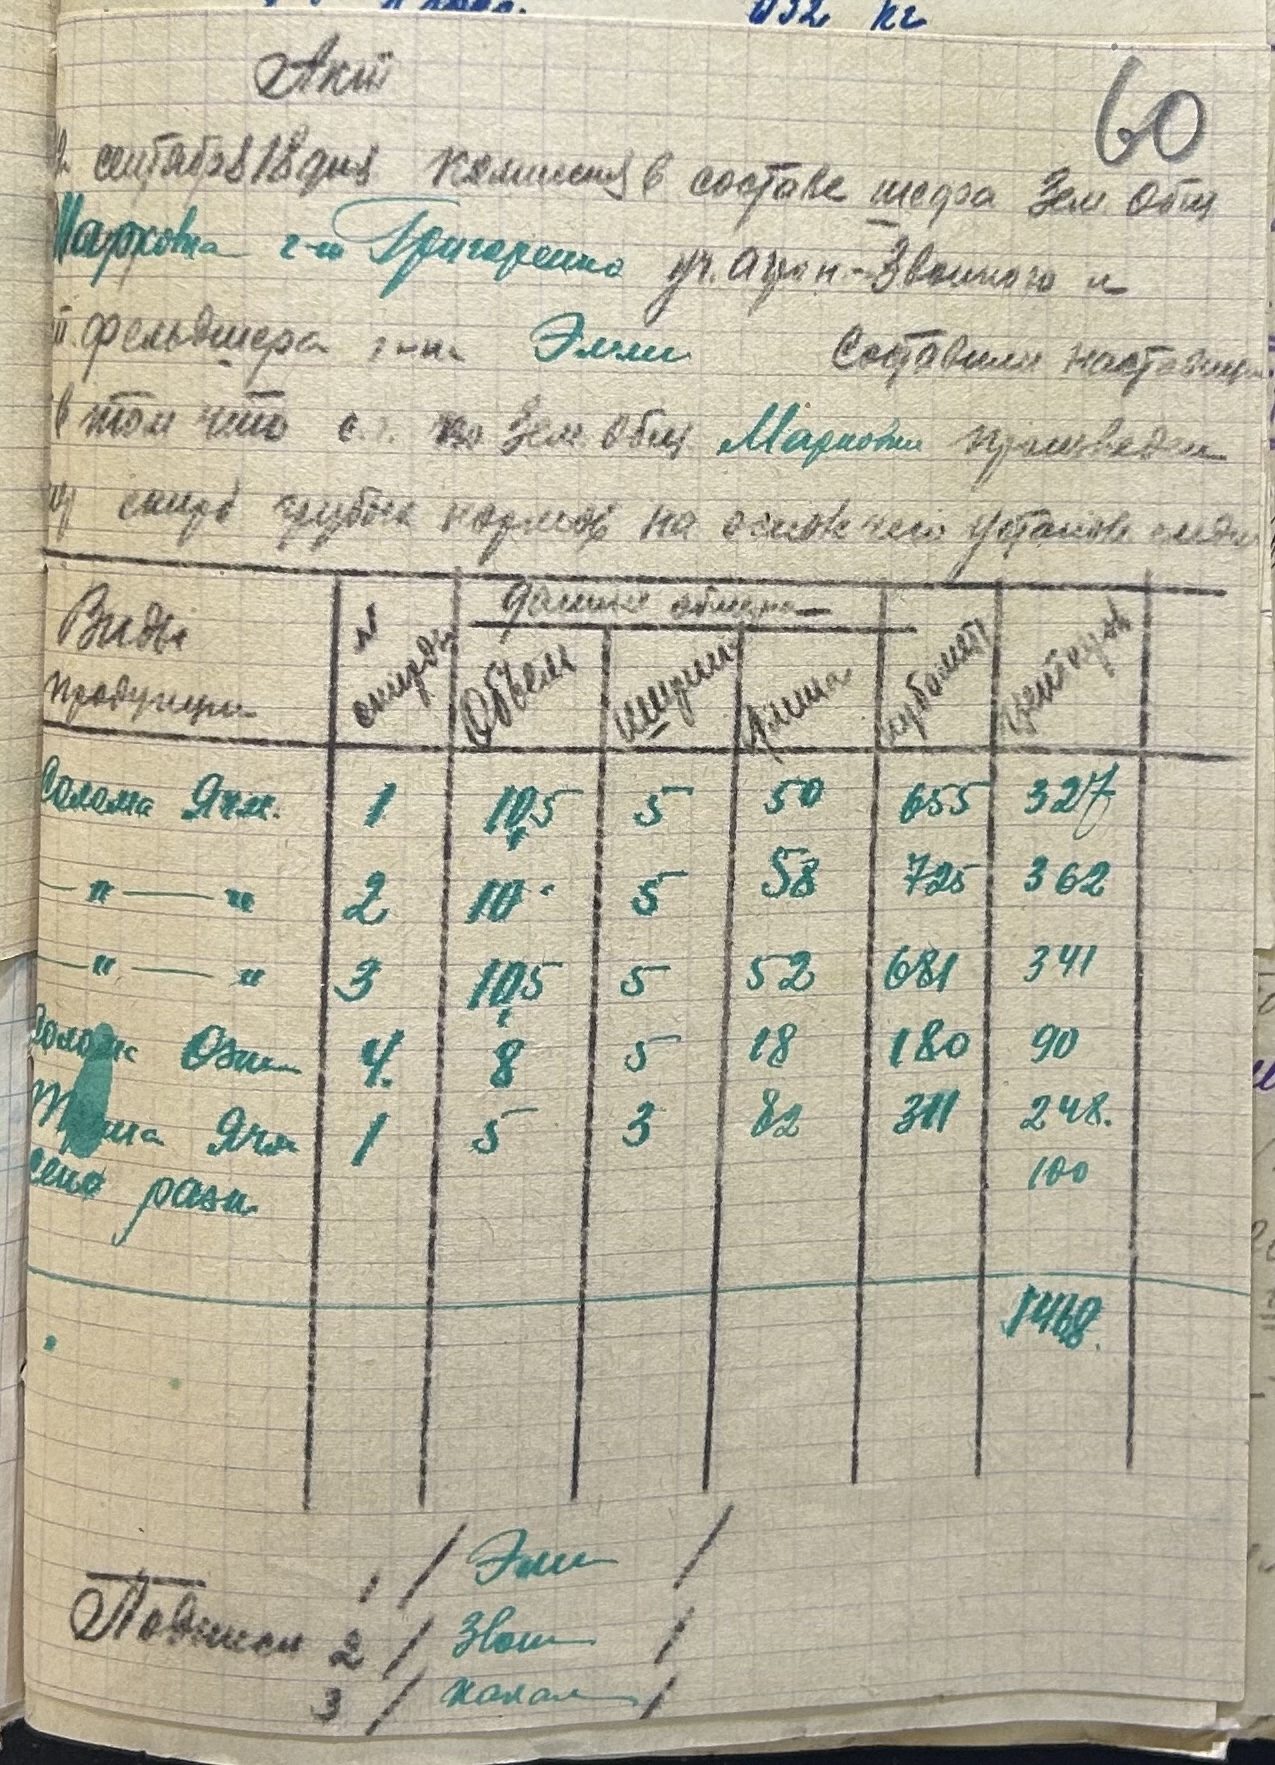 032 кг
60
Акт
сентября 18 дня комиссия в составе шефа Зем. Общ
Марковка г-н Григоренко уч. агрон-Звонкого и
фельдшера г-на Эмли Составили настоящ
в том что с.г. по Зем. Общ. Марковки произведен
скирд грубых кормов на основ чего установ следу
Виды продукции
№ скирды
Данные обмера
Объем
Ширина
Длина
кубомет
центнеров
Солома Ячм. 1 10,5 5 50 655 327
—"—" 2 10 5 58 725 362
—"—" 3 10,5 5 52 681 341
Солома Озим 4. 8 5 18 180 90
Ячм 1 5 3 82 311 248.
сено разн. 100
1468.
Подписи 1 / Эмли /
2 / Звон /
3 / /